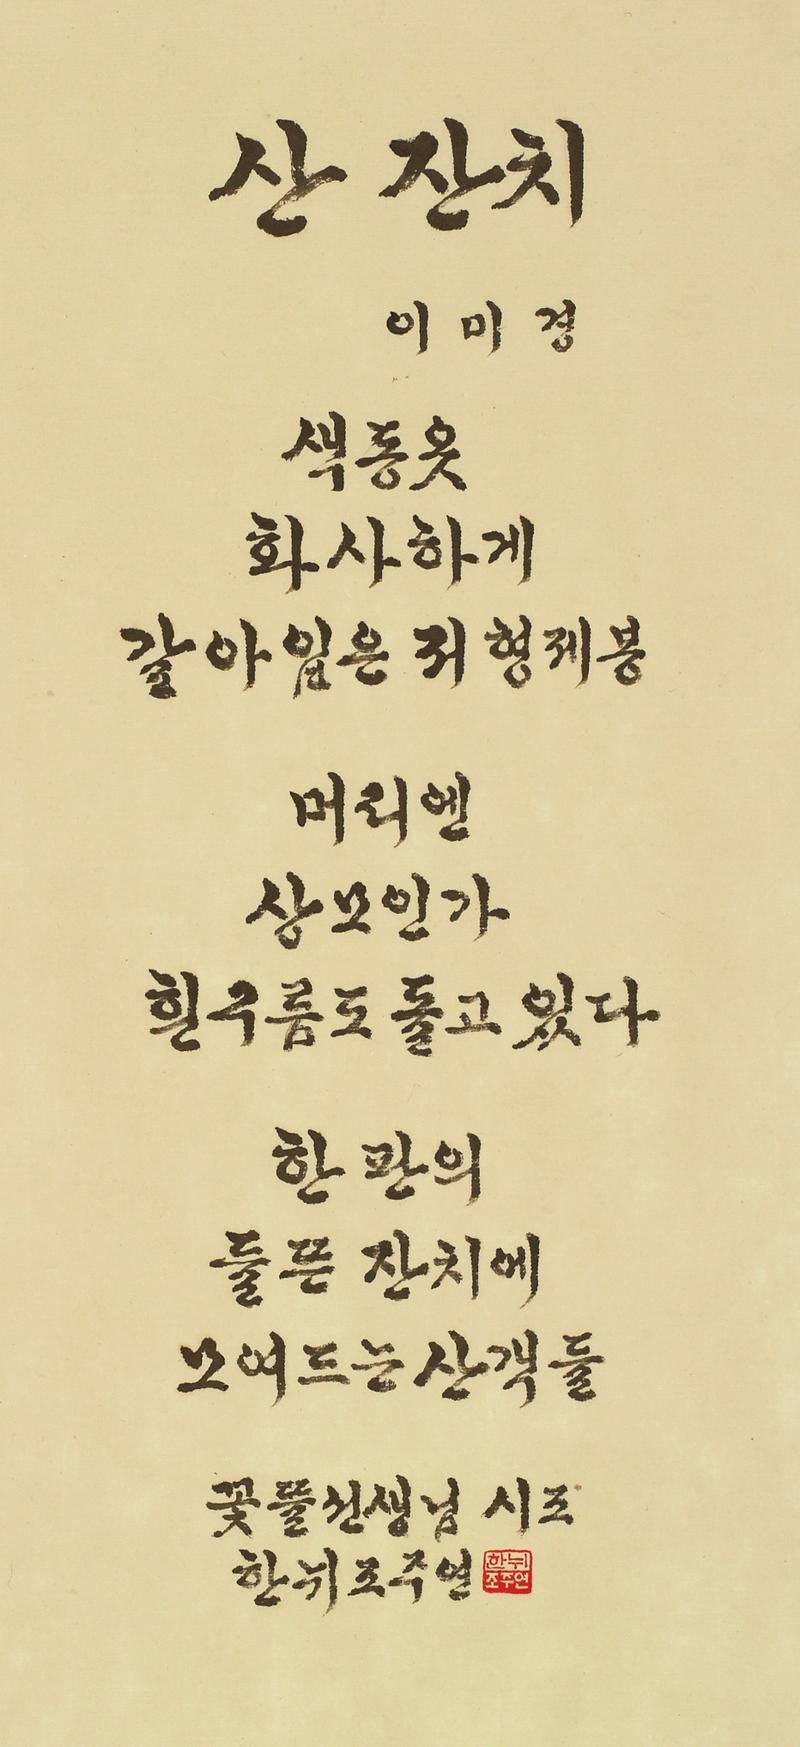 산 잔치
이미경
색동옷
화사하게
갈아입은 저 형제봉
머리엔
상모인가
흰구름도 돌고 있다
한 판의
들뜬 잔치에
모여드는 산객들
꽃뜰선생님 시조
한뉘 조주연
한뉘
조주연